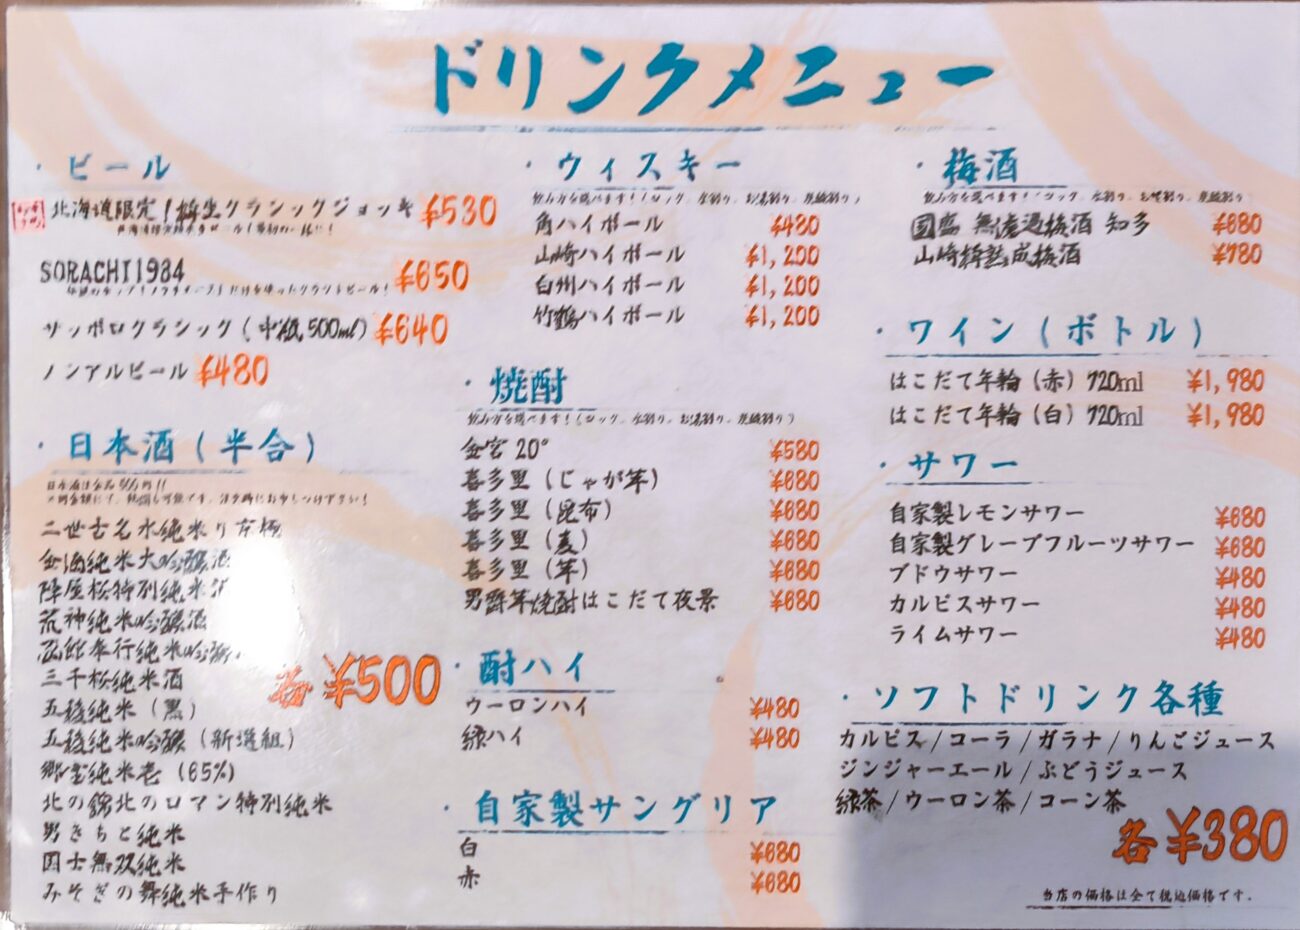 ドリンクメニュー
・ビール
北海道限定!樽生クラシックジョッキ ¥530
SORACHI1984 ¥650
サッポロクラシック(中瓶,500ml) ¥640
ノンアルビール ¥480
・日本酒(半合)
二世古名水純米り 京極
金滴純米大吟醸酒
陣屋桜特別純米酒
荒神純米吟醸酒
函館奉行純米吟醸
三千桜純米酒
五稜純米(黒)
五稜純米吟醸(新選組)
郷宝純米壱(65%)
北の錦北のロマン特別純米
男きちと純米
国士無双純米
みそぎの舞純米手作り
各¥500
・ウィスキー
飲み方を選べます!(ロック、水割り、お湯割り、炭酸割り)
角ハイボール ¥480
山崎ハイボール ¥1,200
白州ハイボール ¥1,200
竹鶴ハイボール ¥1,200
・焼酎
飲み方を選べます!(ロック、水割り、お湯割り、炭酸割り)
金宮20° ¥580
喜多里(じゃが芋) ¥680
喜多里(昆布) ¥680
喜多里(麦) ¥680
喜多里(芋) ¥680
男爵芋焼酎はこだて夜景 ¥680
・酎ハイ
ウーロンハイ ¥480
緑ハイ ¥480
・自家製サングリア
白 ¥680
赤 ¥680
・梅酒
飲み方を選べます!(ロック、水割り、お湯割り、炭酸割り)
國盛 無濾過梅酒 知多 ¥680
山崎樽熟成梅酒 ¥780
・ワイン(ボトル)
はこだて年輪(赤)720ml ¥1,980
はこだて年輪(白)720ml ¥1,980
・サワー
自家製レモンサワー ¥680
自家製グレープフルーツサワー ¥680
ブドウサワー ¥480
カルピスサワー ¥480
ライムサワー ¥480
・ソフトドリンク各種
カルピス/コーラ/ガラナ/りんごジュース
ジンジャーエール/ぶどうジュース
緑茶/ウーロン茶/コーン茶
各¥380
当店の価格は全て税込価格です。